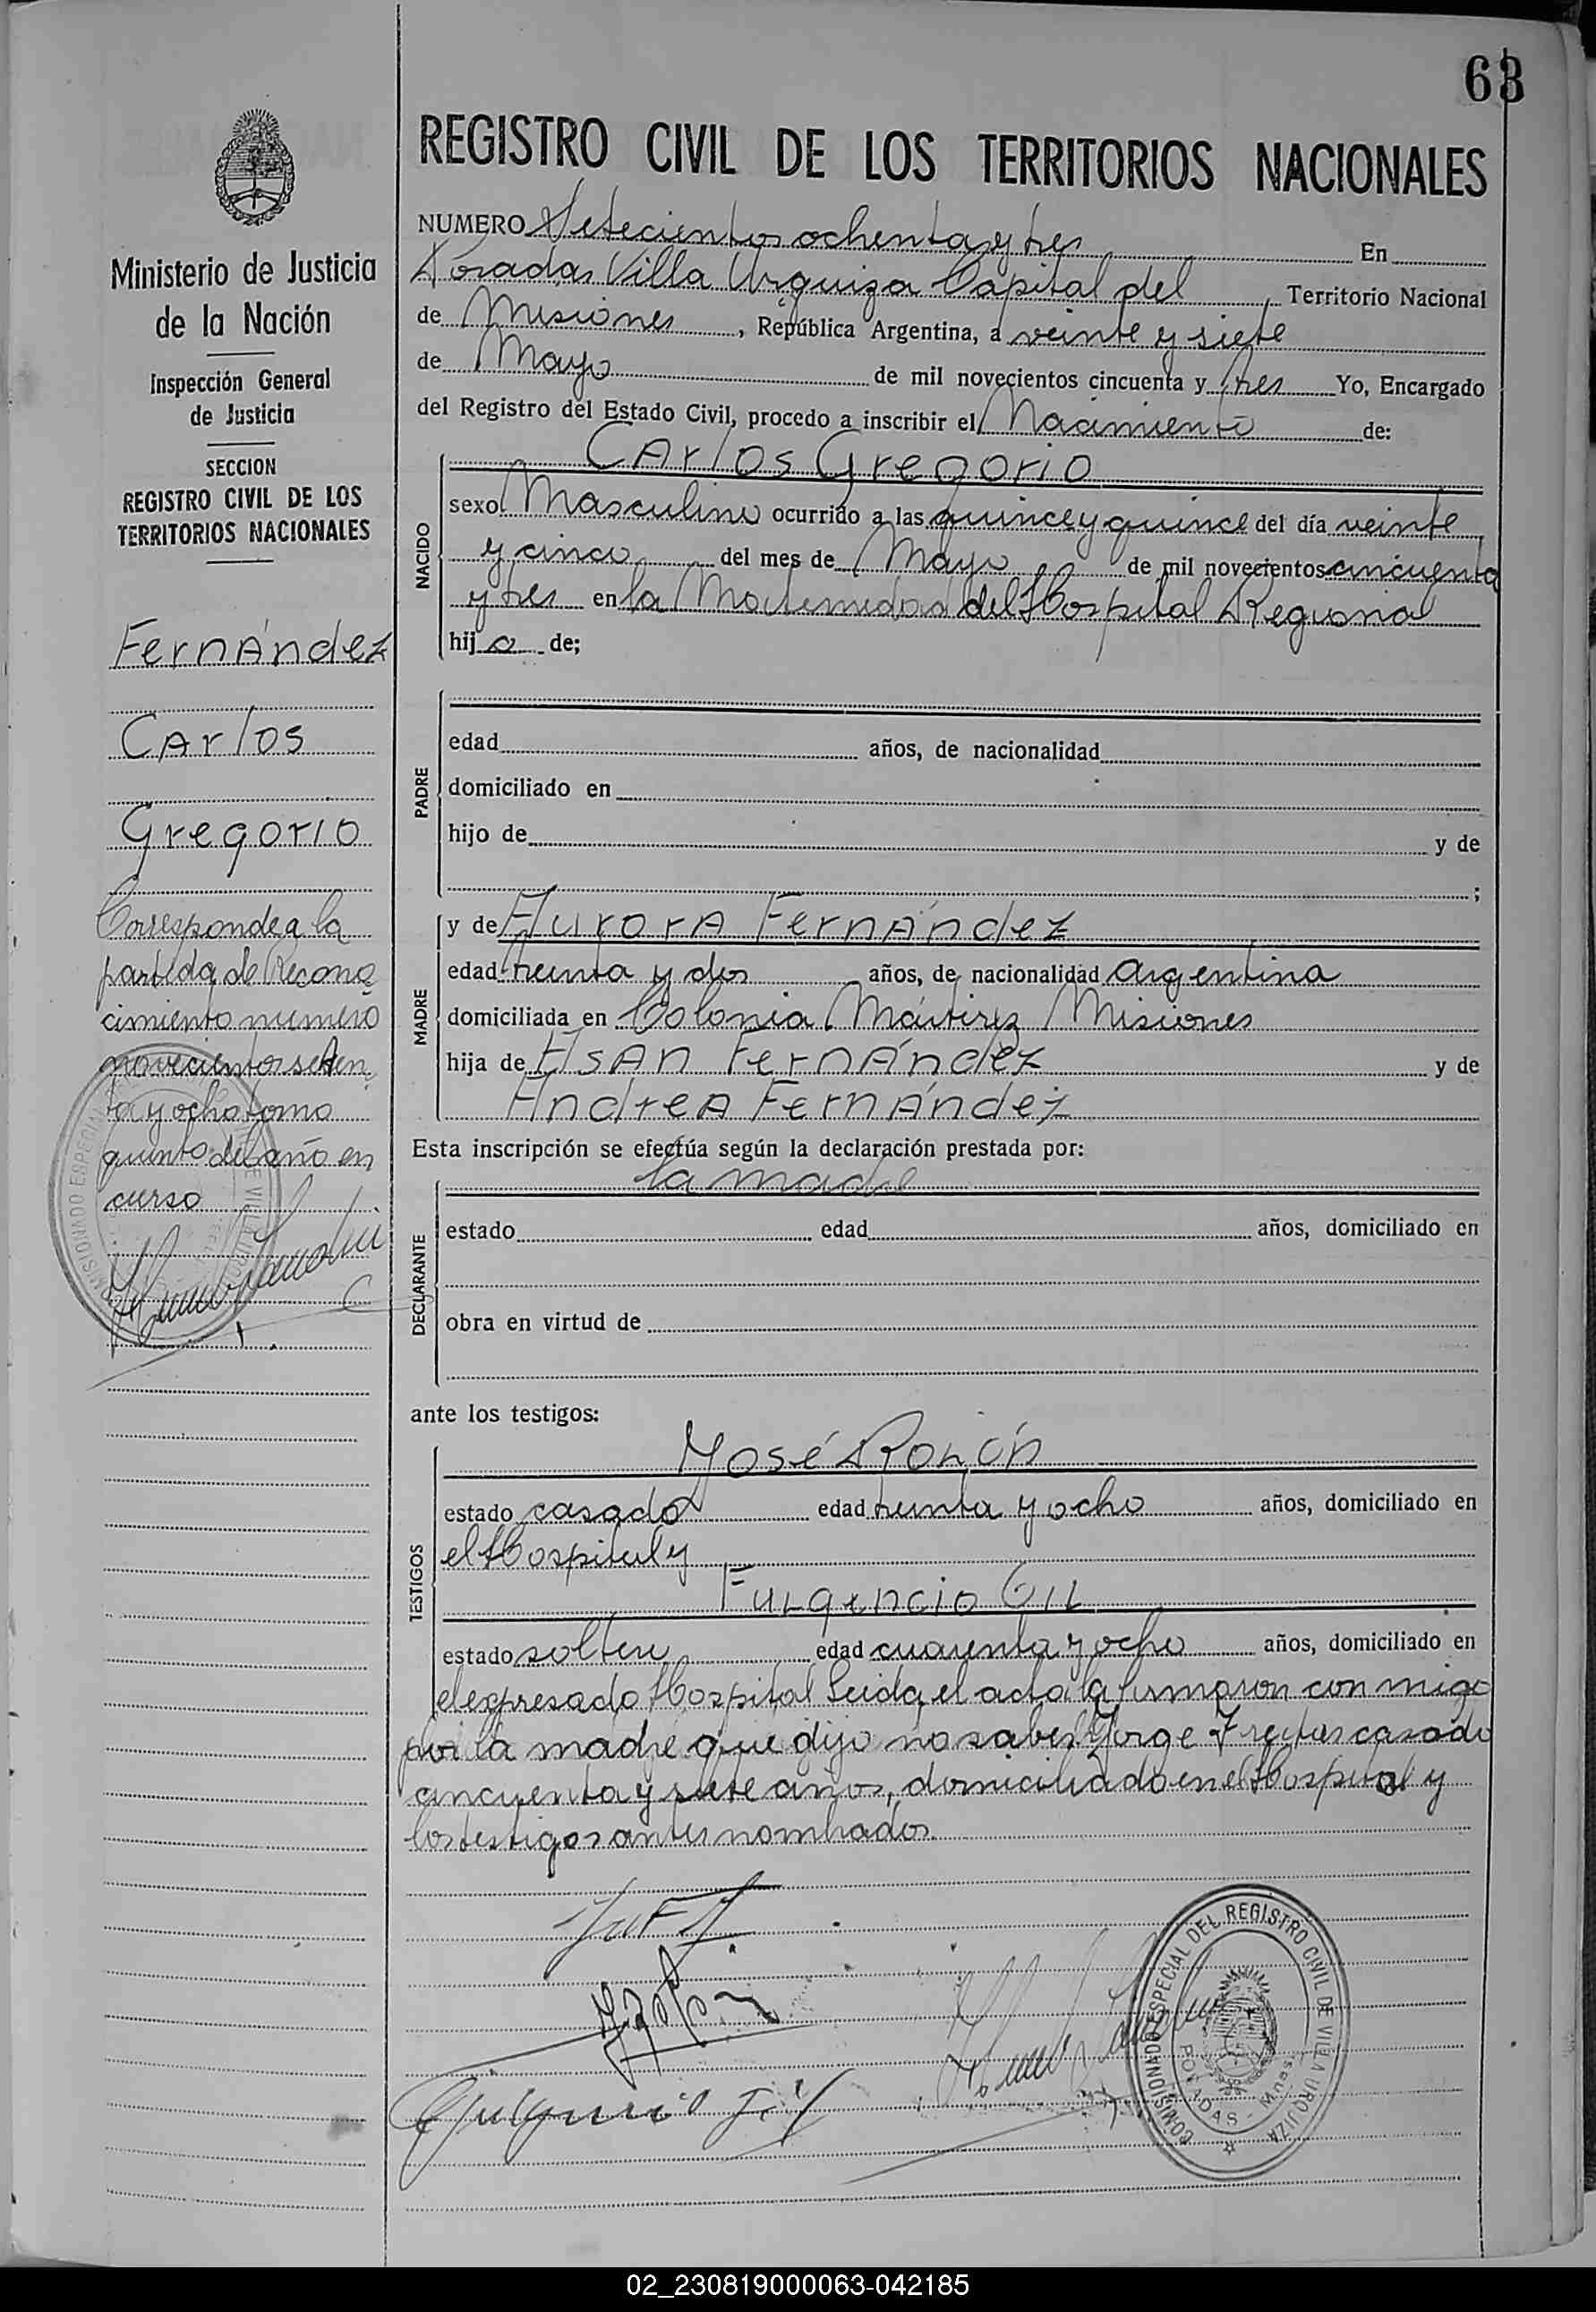 63
REGISTRO CIVIL DE LOS TERRITORIOS NACIONALES
Ministerio de Justicia
de la Nación
Inspección General
de Justicia
SECCION
REGISTRO CIVIL DE LOS
TERRITORIOS NACIONALES
Fernández
Carlos
Gregorio
Corresponde a la
partida de Recono
cimiento numero
novecientos seten
ta y ocho tomo
quinto del año en
curso
NUMERO Setecientos ochenta y tres En
Posadas Villa Urquiza Capital del, Territorio Nacional
de Misiones, República Argentina, a veinte y siete
de Mayo de mil novecientos cincuenta y tres Yo, Encargado
del Registro del Estado Civil, procedo a inscribir el Nacimiento de:
Carlos Gregorio
NACIDO
sexo Masculino ocurrido a las quince y quince del día veinte
y cinco del mes de Mayo de mil novecientos cincuenta
y tres en la Maternidad del Hospital Regional
hijo de;
PADRE
edad años, de nacionalidad
domiciliado en
hijo de y de
;
MADRE
y de Aurora Fernández
edad treinta y dos años, de nacionalidad argentina
domiciliada en Colonia Mártirez Misiones
hija de Asan Fernández y de
Andrea Fernández
Esta inscripción se efectúa según la declaración prestada por:
la madre
DECLARANTE
estado edad años, domiciliado en
obra en virtud de
ante los testigos:
TESTIGOS
José
estado casado edad treinta y ocho años, domiciliado en
el Hospital y
Fulgencio Gil
estado soltero edad cuarenta y ocho años, domiciliado en
el expresado Hospital Leida el acta la firmaron con migo
por la madre que dijo no saber Jorge casado
cincuenta y siete años, domiciliado en el Hospital y
los testigos antes nombrados.
Fulgencio Gil
COMISIONADO ESPECIAL DEL REGISTRO CIVIL DE VILLA URQUIZA
POSADAS - Mnes.
02_230819000063-042185